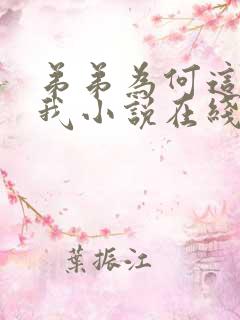 弟弟為何這
我小說在綫
葉振江